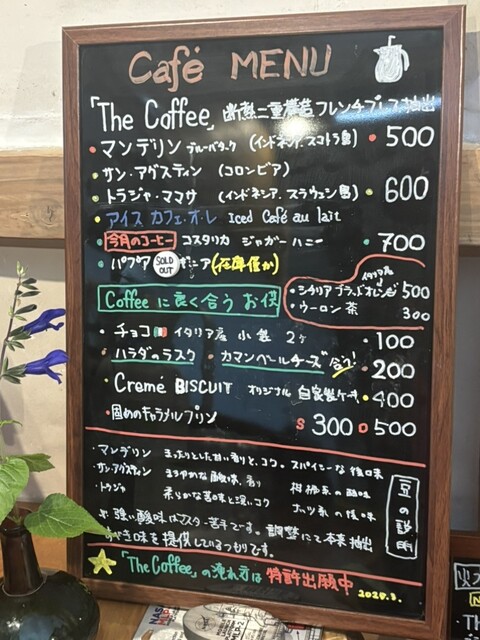 Café MENU
「The Coffee」 断熱二重構造 フレンチプレス抽出
・マンデリン ブルーバタック (インドネシア.スマトラ島) ・500
・サン・アグスティン (コロンビア)
・トラジャ・ママサ (インドネシア.スラウェシ島) ・600
・アイス カフェ・オ・レ Iced Café au lait
・今月のコーヒー コスタリカ ジャガーハニー ・700
・パプア SOLD OUT ギニア (在庫僅か)
イタリア産
・シチリア ブラッドオレンジ 500
・ウーロン茶 300
Coffee に良く合う お供
・チョコ イタリア産 小袋 2ヶ ・100
・ハラダのラスク ・カマンベールチーズ 合う! ・200
・Creme BISCUIT オリジナル 自家製ケーキ ・400
・固めのキャラメルプリン S 300 D 500
・マンデリン まったりとした甘い香りと、コク。スパイシーな後口味
・サン・アグスティン まろやかな酸味、香り 柑橘系の酸味
・トラジャ 柔らかな苦味と深いコク ナッツ系の後味
豆の説明
強い酸味はマスター苦手です。調整にて本来抽出
味を提供しているつもりです。
「The Coffee」の淹れ方は 特許出願中